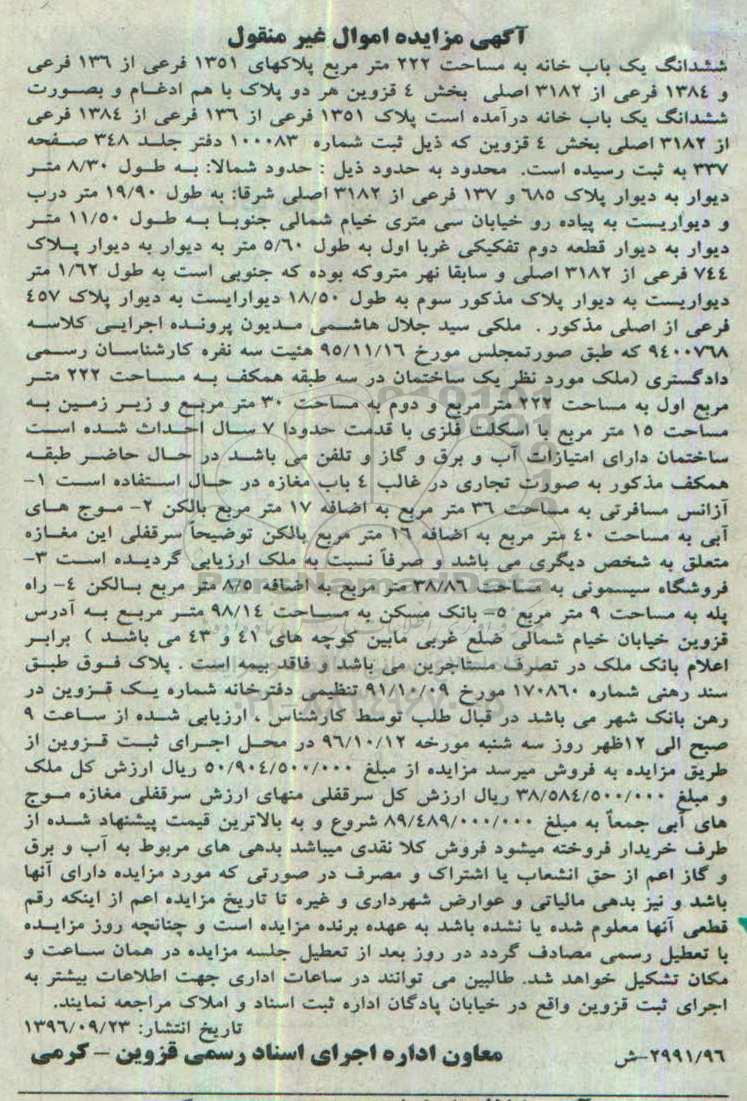 آگهی مزایده اموال غیر منقول
ششدانگ یک باب خانه به مساحت ۲۲۲ متر مربع پلاکهای ۱۳۵۱ فرعی از ۱۳۶ فرعی
و ۱۳۸۴ فرعی از ۳۱۸۲ اصلی بخش ۴ قزوین هر دو پلاک با هم ادغام و بصورت
ششدانگ یک باب خانه درآمده است پلاک ۱۳۵۱ فرعی از ۱۳۶ فرعی از ۱۳۸۴ فرعی
از ۳۱۸۲ اصلی بخش ۴ قزوین که ذیل ثبت شماره ۱۰۰۰۸۳ دفتر جلد ۳۴۸ صفحه
۳۳۷ به ثبت رسیده است. محدود به حدود ذیل : حدود شمالا: به طول ۸/۳۰ متر
دیوار به دیوار پلاک ۶۸۵ و ۱۳۷ فرعی از ۳۱۸۲ اصلی شرقا: به طول ۱۹/۹۰ متر درب
و دیواریست به پیاده رو خیابان سی متری خیام شمالی جنوبا به طول ۱۱/۵۰ متر
دیوار به دیوار قطعه دوم تفکیکی غربا اول به طول ۵/۶۰ متر به دیوار به دیوار پلاک
۷۴۴ فرعی از ۳۱۸۲ اصلی و سابقا نهر متروکه بوده که جنوبی است به طول ۱/۶۲ متر
دیواریست به دیوار پلاک مذکور سوم به طول ۱۸/۵۰ دیوارایست به دیوار پلاک ۴۵۷
فرعی از اصلی مذکور . ملکی سید جلال هاشمی مدیون پرونده اجرایی کلاسه
۹۴۰۰۷۶۸ که طبق صورتمجلس مورخ ۹۵/۱۱/۱۶ هئیت سه نفره کارشناسان رسمی
دادگستری (ملک مورد نظر یک ساختمان در سه طبقه همکف به مساحت ۲۲۲ متر
مربع اول به مساحت ۲۲۲ متر مربع و دوم به مساحت ۳۰ متر مربع و زیر زمین به
مساحت ۱۵ متر مربع با اسکلت فلزی با قدمت حدودا ۷ سال احداث شده است
ساختمان دارای امتیازات آب و برق و گاز و تلفن می باشد در حال حاضر طبقه
همکف مذکور به صورت تجاری در غالب ۴ باب مغازه در حال استفاده است ۱-
آژانس مسافرتی به مساحت ۳۶ متر مربع به اضافه ۱۷ متر مربع بالکن ۲- موج های
آبی به مساحت ۴۰ متر مربع به اضافه ۱۶ متر مربع بالکن توضیحاً سرقفلی این مغازه
متعلق به شخص دیگری می باشد و صرفاً نسبت به ملک ارزیابی گردیده است ۳-
فروشگاه سیسمونی به مساحت ۳۸/۸۶ متر مربع به اضافه ۸/۵ متر مربع بالکن ۴- راه
پله به مساحت ۹ متر مربع ۵- بانک مسکن به مساحت ۹۸/۱۴ متر مربع به آدرس
قزوین خیابان خیام شمالی ضلع غربی مابین کوچه های ۴۱ و ۴۳ می باشد ) برابر
اعلام بانک ملک در تصرف مستاجرین می باشد و فاقد بیمه است . پلاک فوق طبق
سند رهنی شماره ۱۷۰۸۶۰ مورخ ۹۱/۱۰/۰۹ تنظیمی دفترخانه شماره یک قزوین در
رهن بانک شهر می باشد در قبال طلب توسط کارشناس ، ارزیابی شده از ساعت ۹
صبح الی ۱۲ظهر روز سه شنبه مورخه ۹۶/۱۰/۱۲ در محل اجرای ثبت قزوین از
طریق مزایده به فروش میرسد مزایده از مبلغ ۵۰/۹۰۴/۵۰۰/۰۰۰ ریال ارزش کل ملک
و مبلغ ۳۸/۵۸۴/۵۰۰/۰۰۰ ریال ارزش کل سرقفلی منهای ارزش سرقفلی مغازه موج
های آبی جمعاً به مبلغ ۸۹/۴۸۹/۰۰۰/۰۰۰ شروع و به بالاترین قیمت پیشنهاد شده از
طرف خریدار فروخته میشود فروش کلا نقدی میباشد بدهی های مربوط به آب و برق
و گاز اعم از حق انشعاب یا اشتراک و مصرف در صورتی که مورد مزایده دارای آنها
باشد و نیز بدهی مالیاتی و عوارض شهرداری و غیره تا تاریخ مزایده اعم از اینکه رقم
قطعی آنها معلوم شده یا نشده باشد به عهده برنده مزایده است و چنانچه روز مزایده
با تعطیل رسمی مصادف گردد در روز بعد از تعطیل جلسه مزایده در همان ساعت و
مکان تشکیل خواهد شد. طالبین می توانند در ساعات اداری جهت اطلاعات بیشتر به
اجرای ثبت قزوین واقع در خیابان پادگان اداره ثبت اسناد و املاک مراجعه نمایند.
تاریخ انتشار: ۱۳۹۶/۰۹/۲۳
۲۹۹۱/۹۶-ش معاون اداره اجرای اسناد رسمی قزوین - کرمی